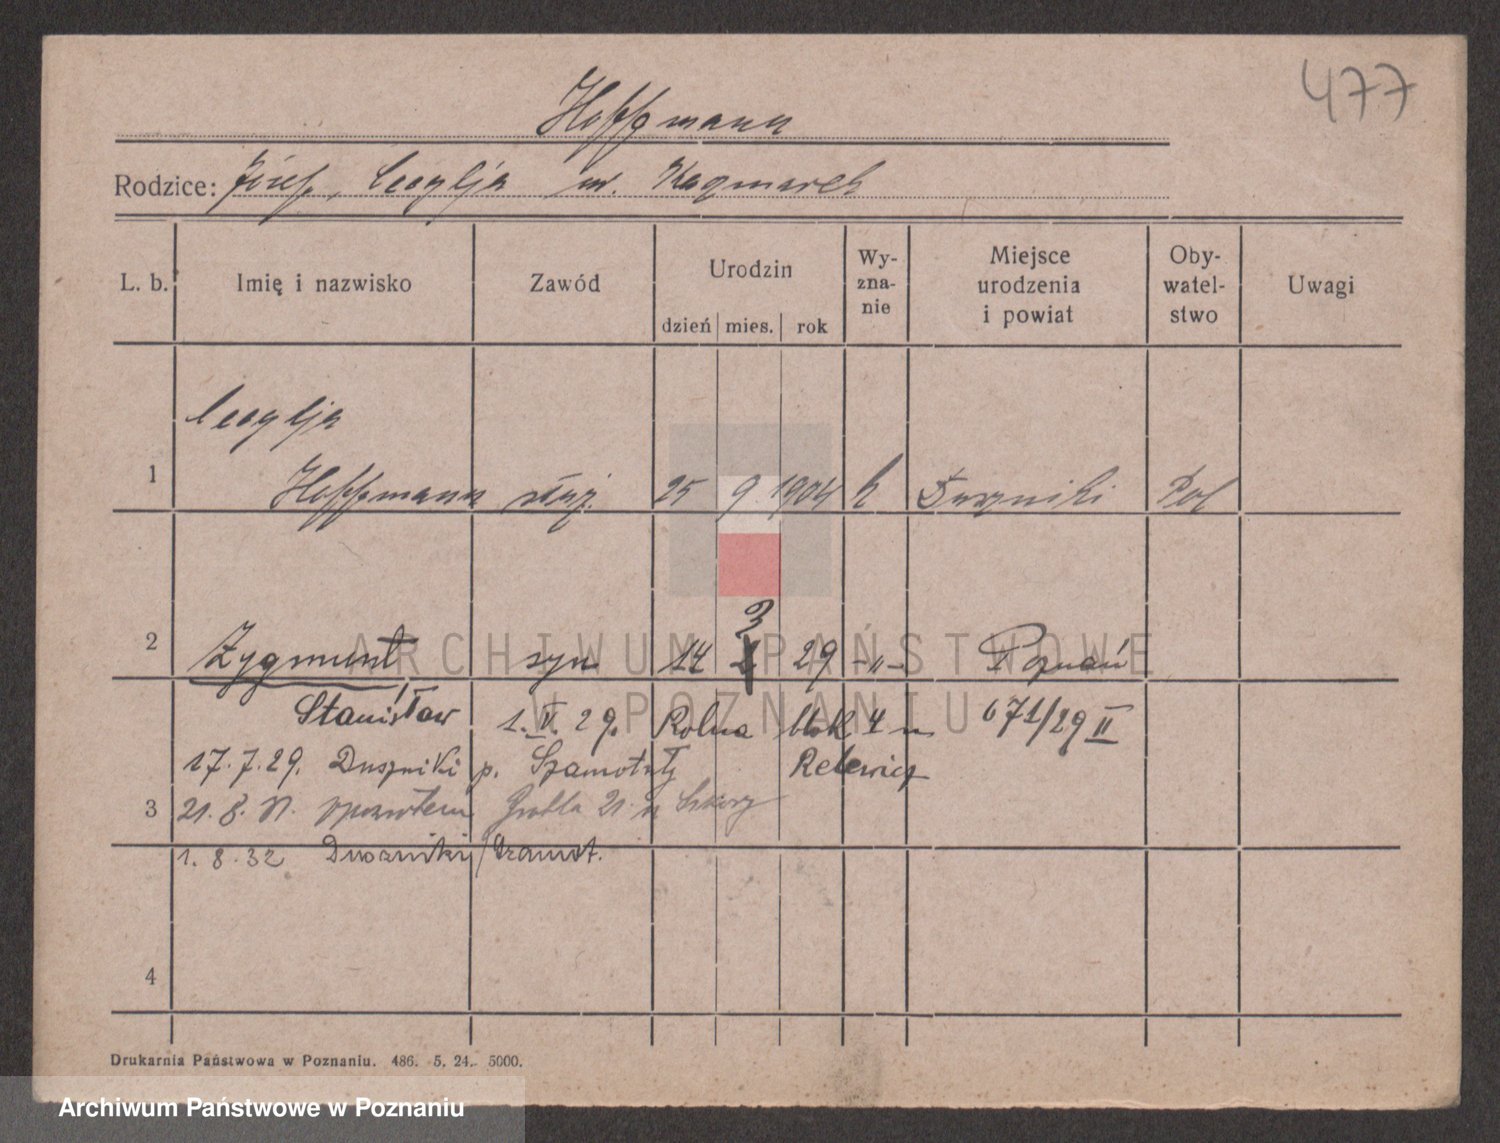 477
Hoffmann
Rodzice: Józef, Cecylja ur. Kaczmarek
L. b. Imię i nazwisko Zawód Urodzin dzień mies. rok Wy-zna-nie Miejsce urodzenia i powiat Oby-watel-stwo Uwagi
Cecylja
1 Hoffmann służ. 25 9 1904 k Duszniki Pol
3
2 Zygmunt syn 14 29 -"- Poznań
Stanisław 1. IV. 29. Rolna blok 4 671/29 II
17.7.29. Duszniki p. Szamotuły
3 21. 8. 31. Grobla 21
1. 8. 32 Duszniki / Szamot.
4
Drukarnia Państwowa w Poznaniu. 486. 5. 24. 5000.
ARCHIWUM PAŃSTWOWE
W POZNANIU
Archiwum Państwowe w Poznaniu